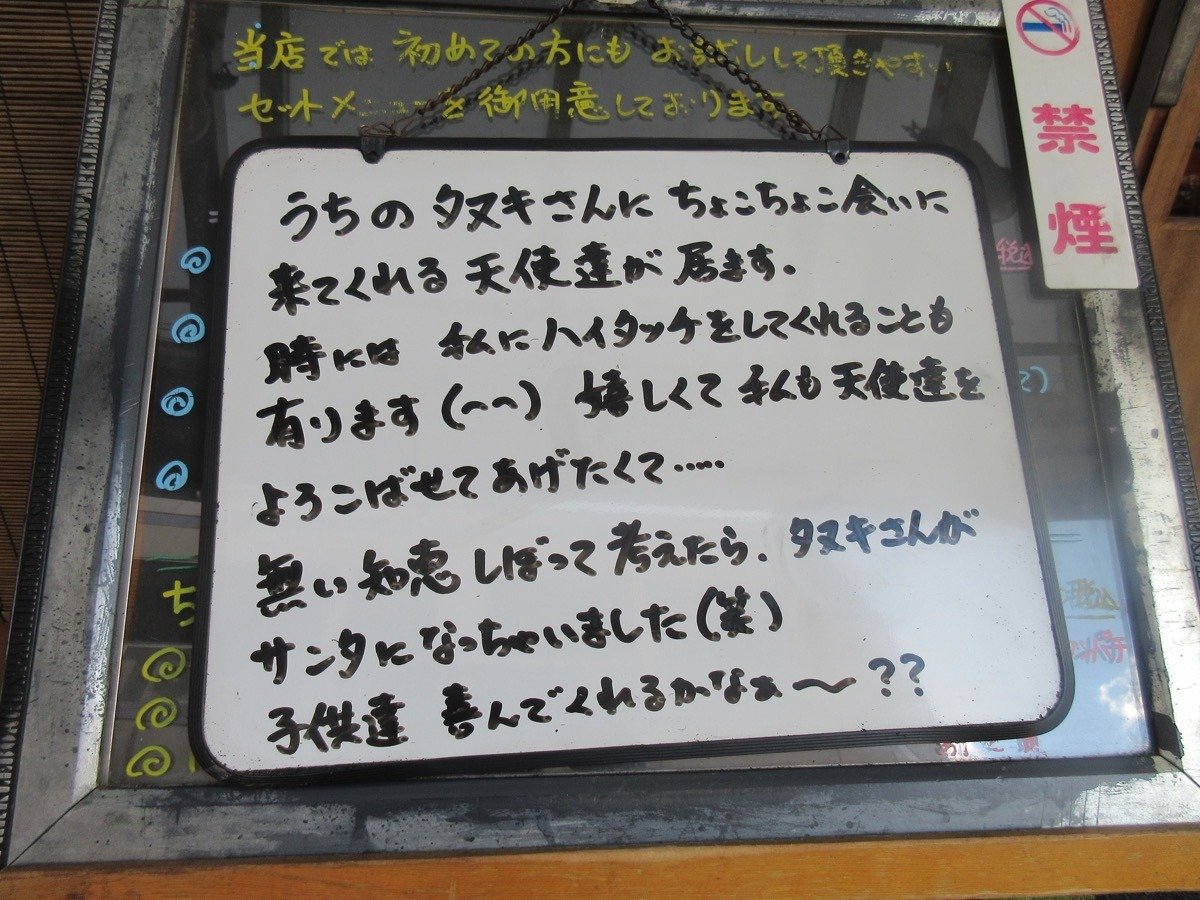 当店では 初めての方にも お試しして頂きやすい
セットメニューを御用意しております
禁煙
うちの タヌキさんに ちょこちょこ会いに
来てくれる 天使達が 居ます.
時には 私に ハイタッチをしてくれることも
有ります (⌒⌒) 嬉しくて 私も 天使達を
よろこばせて あげたくて.....
無い 知恵 しぼって 考えたら. タヌキさんが
サンタに なっちゃいました (笑)
子供達 喜んでくれるかなぁ～??
SPARKLEBOARD